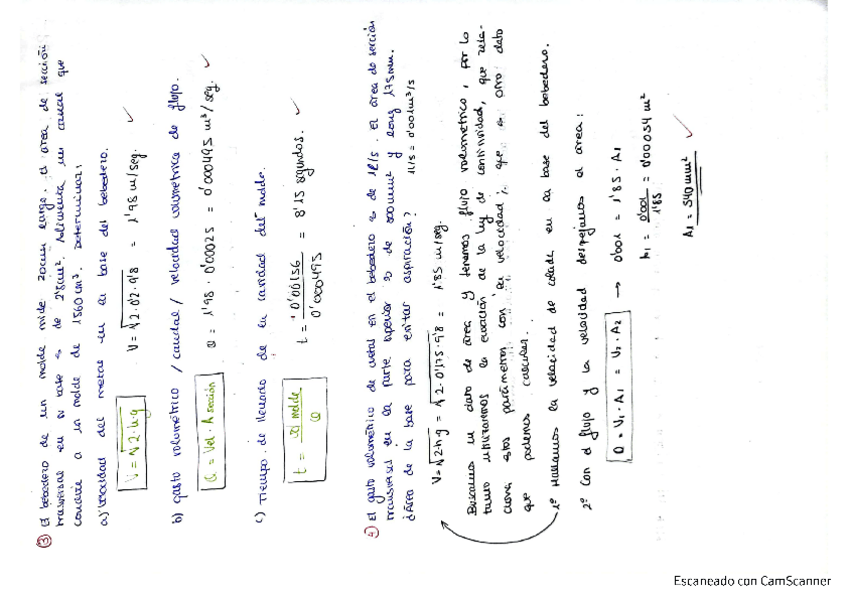 ③ El bebedero de un molde mide 20cm largo, el área de sección
trasversal en su base es de 2'5cm². Alimenta un canal que
conduce a un molde de 1560 cm³. Determinar:
a) Velocidad del metal en la base del bebedero.
V = √2·h·g   V = √2·0'2·9'8 = 1'98 m/seg. ✓
b) gasto volumétrico / caudal / velocidad volumétrica de flujo.
Q = Vel · A sección   Q = 1'98 · 0'00025 = 0'000495 m³/seg. ✓
c) Tiempo de llenado de la cavidad del molde.
t = molde / Q   t = 0'00156 / 0'000495 = 3'15 segundos. ✓
④ El gasto volumétrico de metal en el bebedero es de 1l/s. el área de sección
transversal en la parte superior es de 800mm² y long 175mm.
¿Área de la base para evitar aspiración? 1l/s = 0'001m³/s
V = √2·h·g = √2·0'175·9'8 = 1'85 m/seg.
Buscamos un dato de área y tenemos flujo volumétrico, por lo
tanto utilizaremos la ecuación de la ley de continuidad, que rela-
ciona estos parámetros con la velocidad, que es otro dato
que podemos calcular.
1º Hallamos la velocidad de colada en la base del bebedero.
2º Con el flujo y la velocidad despejamos el área:
Q = V₁ · A₁ = V₂ · A₂ → 0'001 = 1'85 · A₁
A₁ = 0'001 / 1'85 = 0'00054 m²
A₁ = 540 mm² ✓
Escaneado con CamScanner